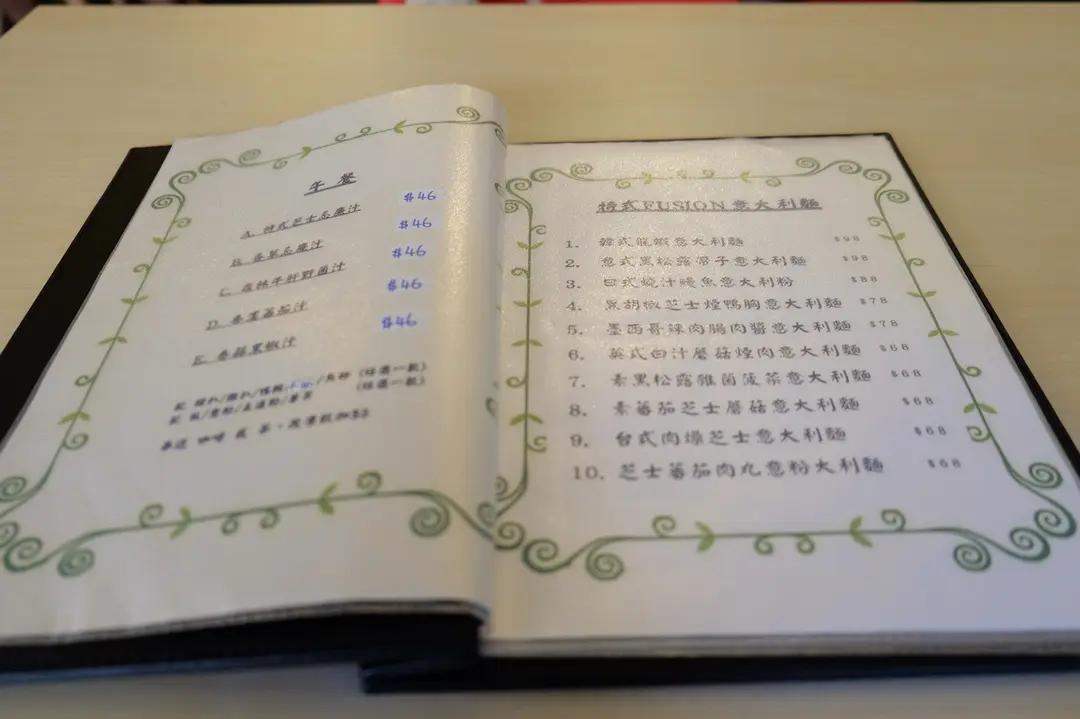 午餐
A. 特式芝士忌廉汁 $46
B. 香草忌廉汁 $46
C. 森林牛肝野菌汁 $46
D. 香濃蕃茄汁 $46
E. 香蒜黑椒汁 $46
配 雞扒/豬扒/鴨胸/魚柳 (任選一款)
配 飯/意粉/ (任選一款)
奉送 咖啡 或 茶,凍飲加$3
特式FUSION意大利麵
1. 韓式龍蝦意大利麵 $98
2. 意式黑松露帶子意大利麵 $98
3. 日式燒汁鰻魚意大利粉 $88
4. 黑胡椒芝士煙鴨胸意大利麵 $78
5. 墨西哥辣肉腸肉醬意大利麵 $78
6. 英式白汁蘑菇煙肉意大利麵 $68
7. 素黑松露雜菌菠菜意大利麵 $68
8. 素蕃茄芝士蘑菇意大利麵 $68
9. 台式肉燥芝士意大利麵 $68
10. 芝士蕃茄肉丸意粉大利麵 $68